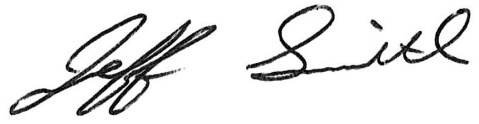 Jeff Smith